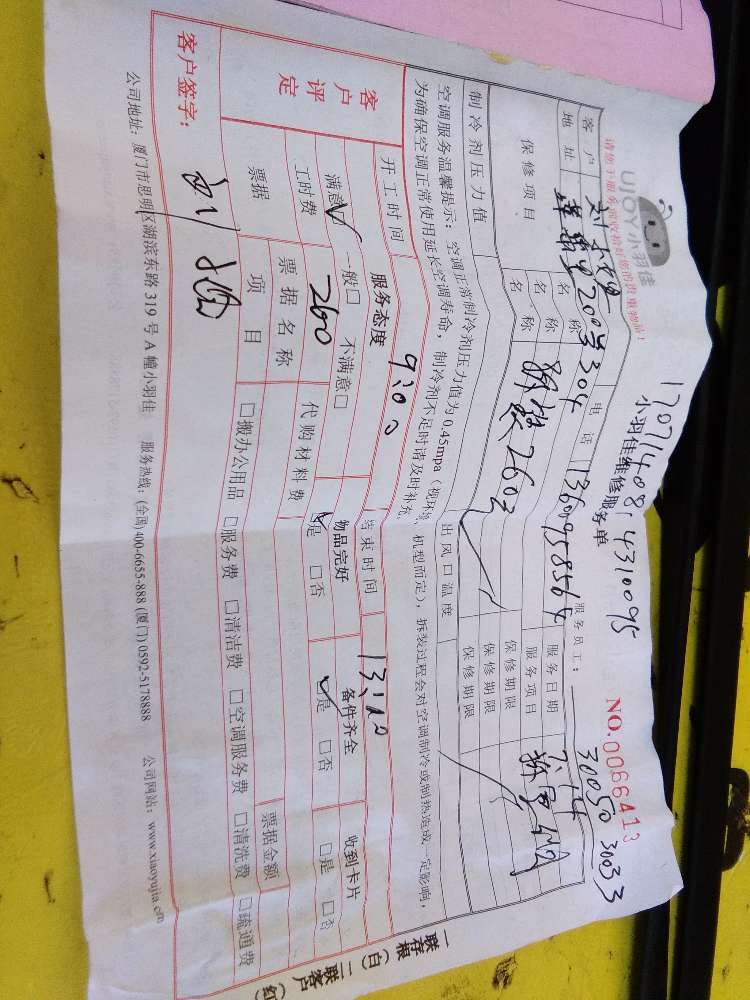 请您于服务前收拾好您的贵重物品!
UJOY小羽佳
170714081 4310095
小羽佳维修服务单
NO.0066413
30050 30033
服务员工:
客户 电话 1360958564 服务日期 7.14
地址 莲花里200号304 服务项目
保修项目 名称 保修期限
名称 260元 保修期限
制冷剂压力值 出风口温度
空调服务温馨提示:空调正常制冷剂压力值为0.45mpa(视环境、机型而定),拆装过程会对空调制冷或制热造成一定影响,
为确保空调正常使用延长空调寿命,制冷剂不足时请及时补充
开工时间 9:00 结束时间
客户评定 服务态度 物品完好 备件齐全 收到卡片
满意☑ 一般□ 不满意□ ☑是 □否 ☑是 □否 □是 □否
工时费 260 代购材料费
票据 票据名称 票据金额
项目 □搬办公用品 □服务费 □清洁费 □空调服务费 □清洗费 □疏通费
客户签字:
公司地址:厦门市思明区湖滨东路319号A幢小羽佳 服务热线:(全国)400-6655-888 (厦门)0592-5178888 公司网站:www.xiaoyujia.com
一联存根(白)二联客户(红)